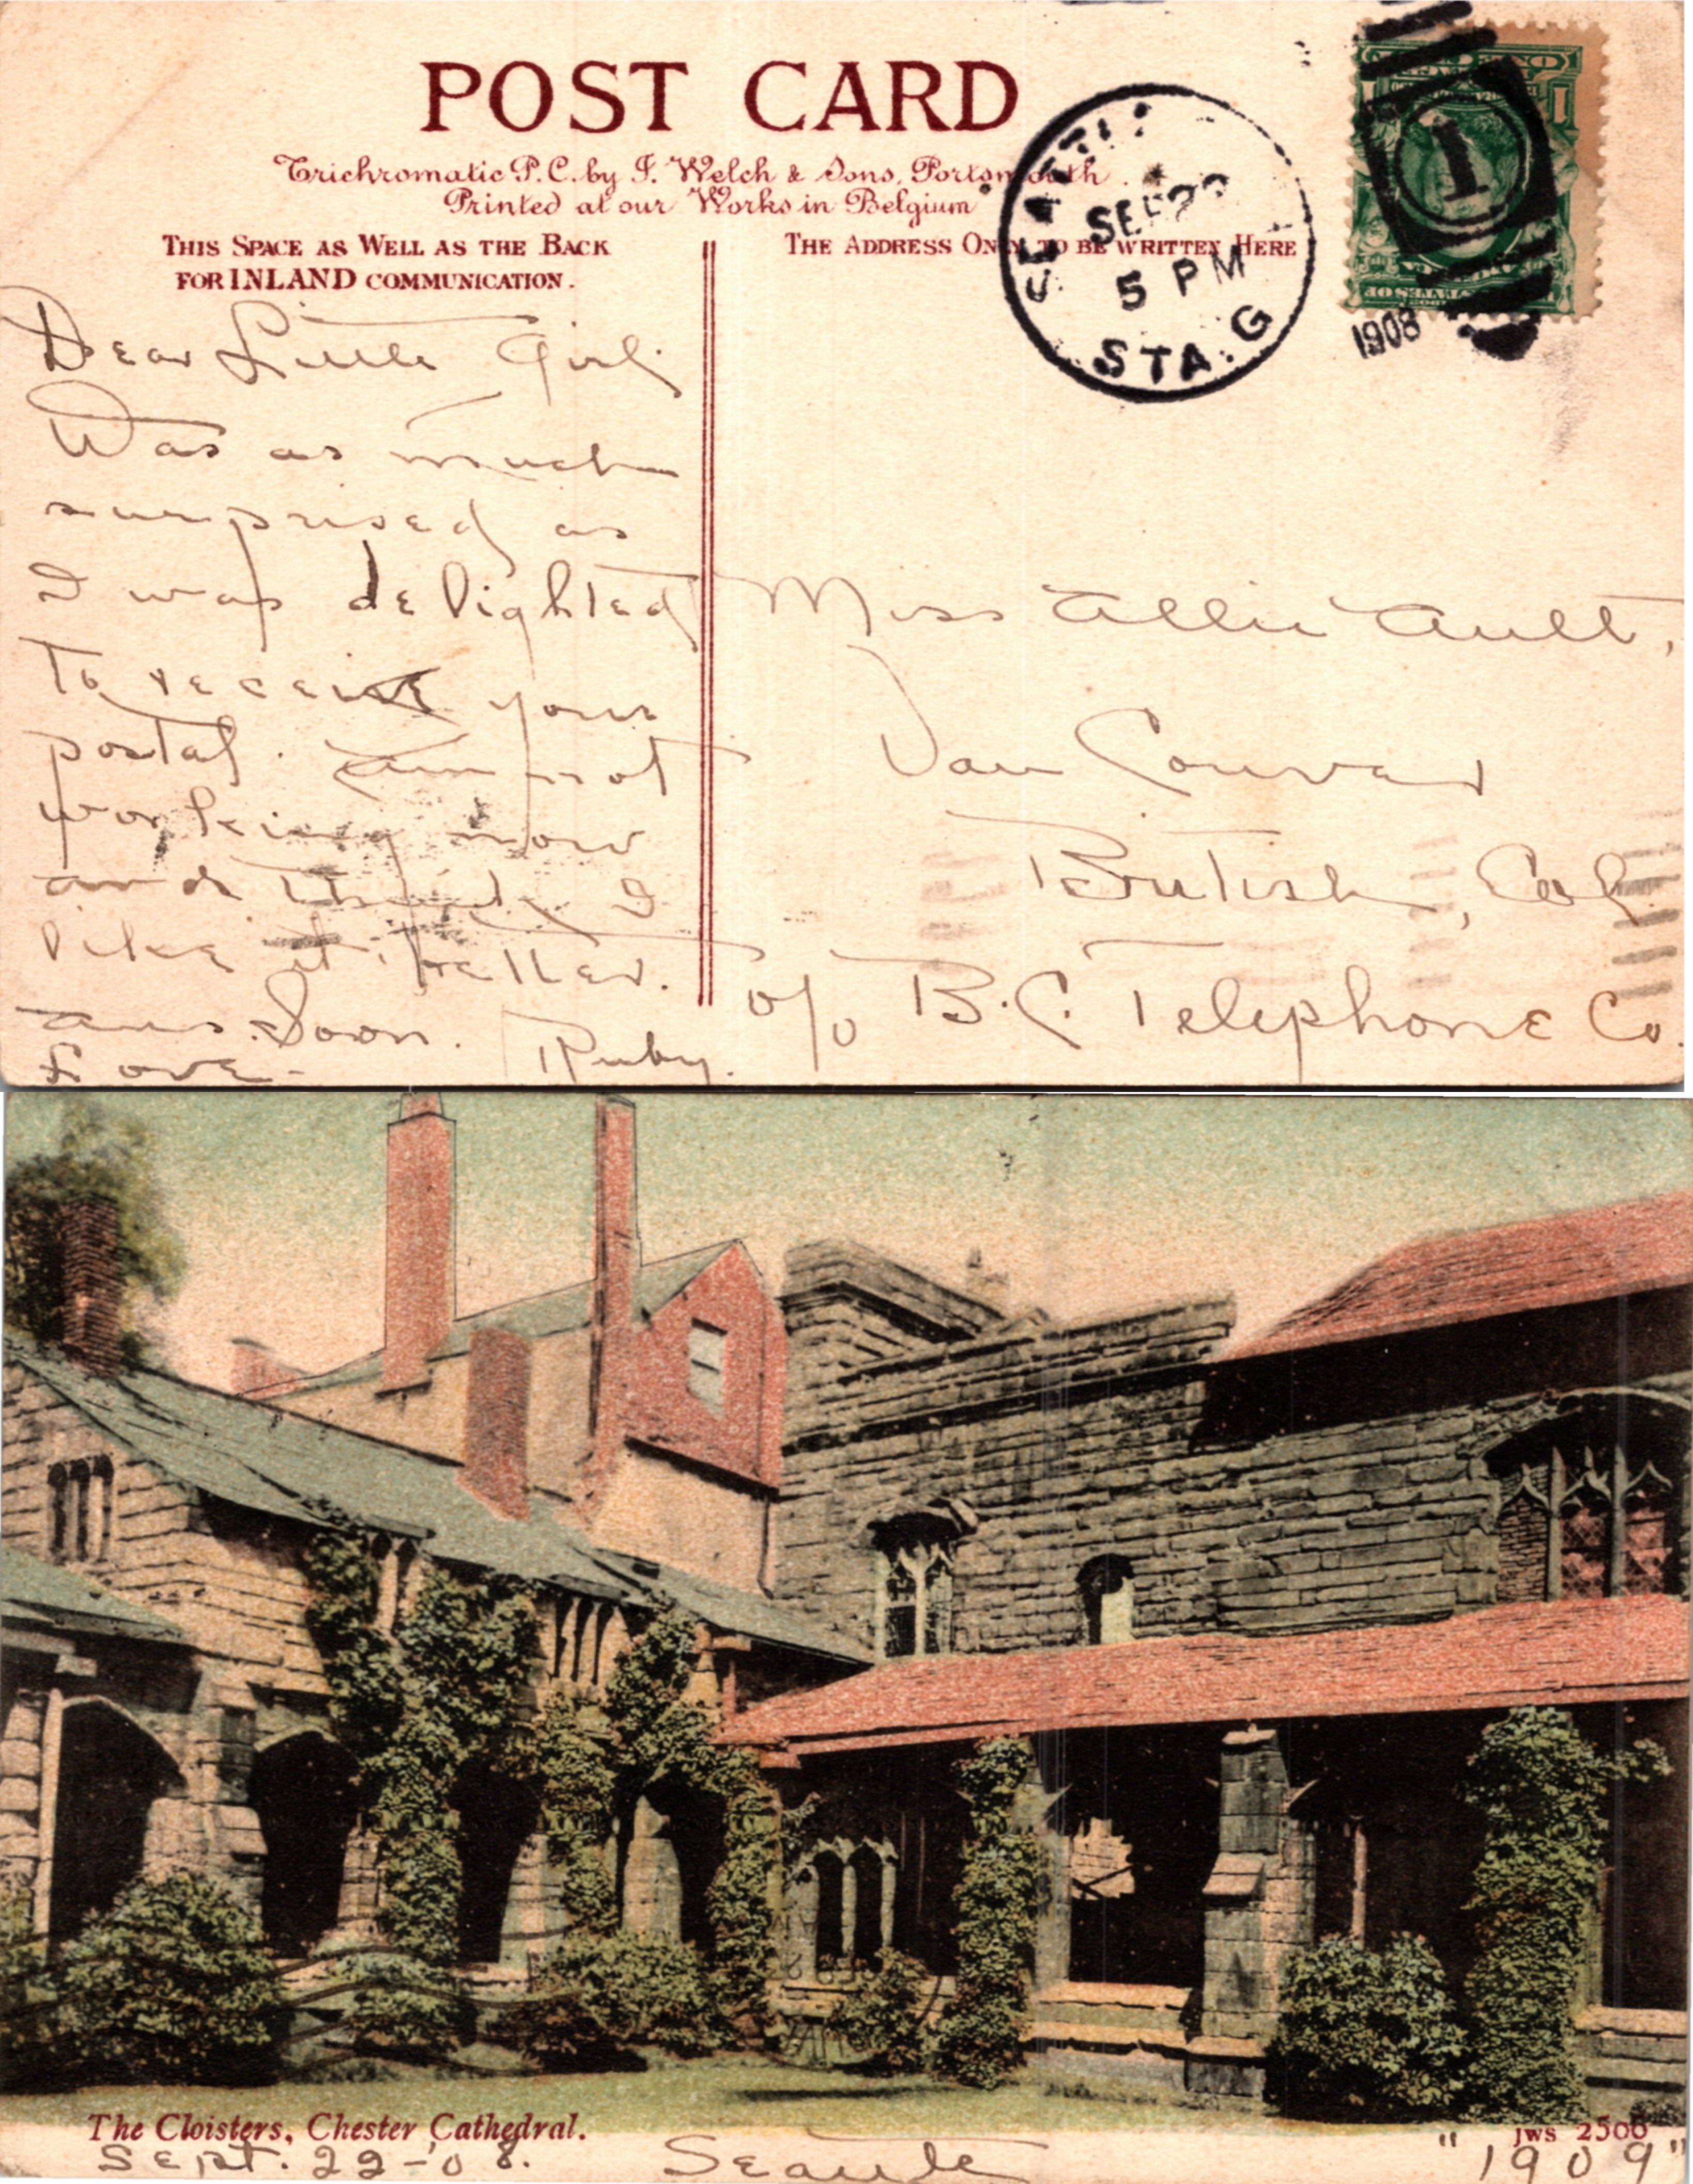 POST CARD
Trichromatic P.C. by J. Welch & Sons, Portsmouth.
Printed at our Works in Belgium
THIS SPACE AS WELL AS THE BACK
FOR INLAND COMMUNICATION.
THE ADDRESS ONLY TO BE WRITTEN HERE
SEATTLE
SEP 22
5 PM
STA. G
1908
1
Dear Little Girl;
Was as much
surprised as
I was delighted
to receive your
postal. Am not
working now
and think I
like it better.
Ans. Soon.
Love - Ruby.
Miss Allie Ault,
Van Couver
British, Col.
c/o B.C. Telephone Co.
The Cloisters, Chester Cathedral.
JWS 2506
Sept. 22-'08. Seattle "1909"